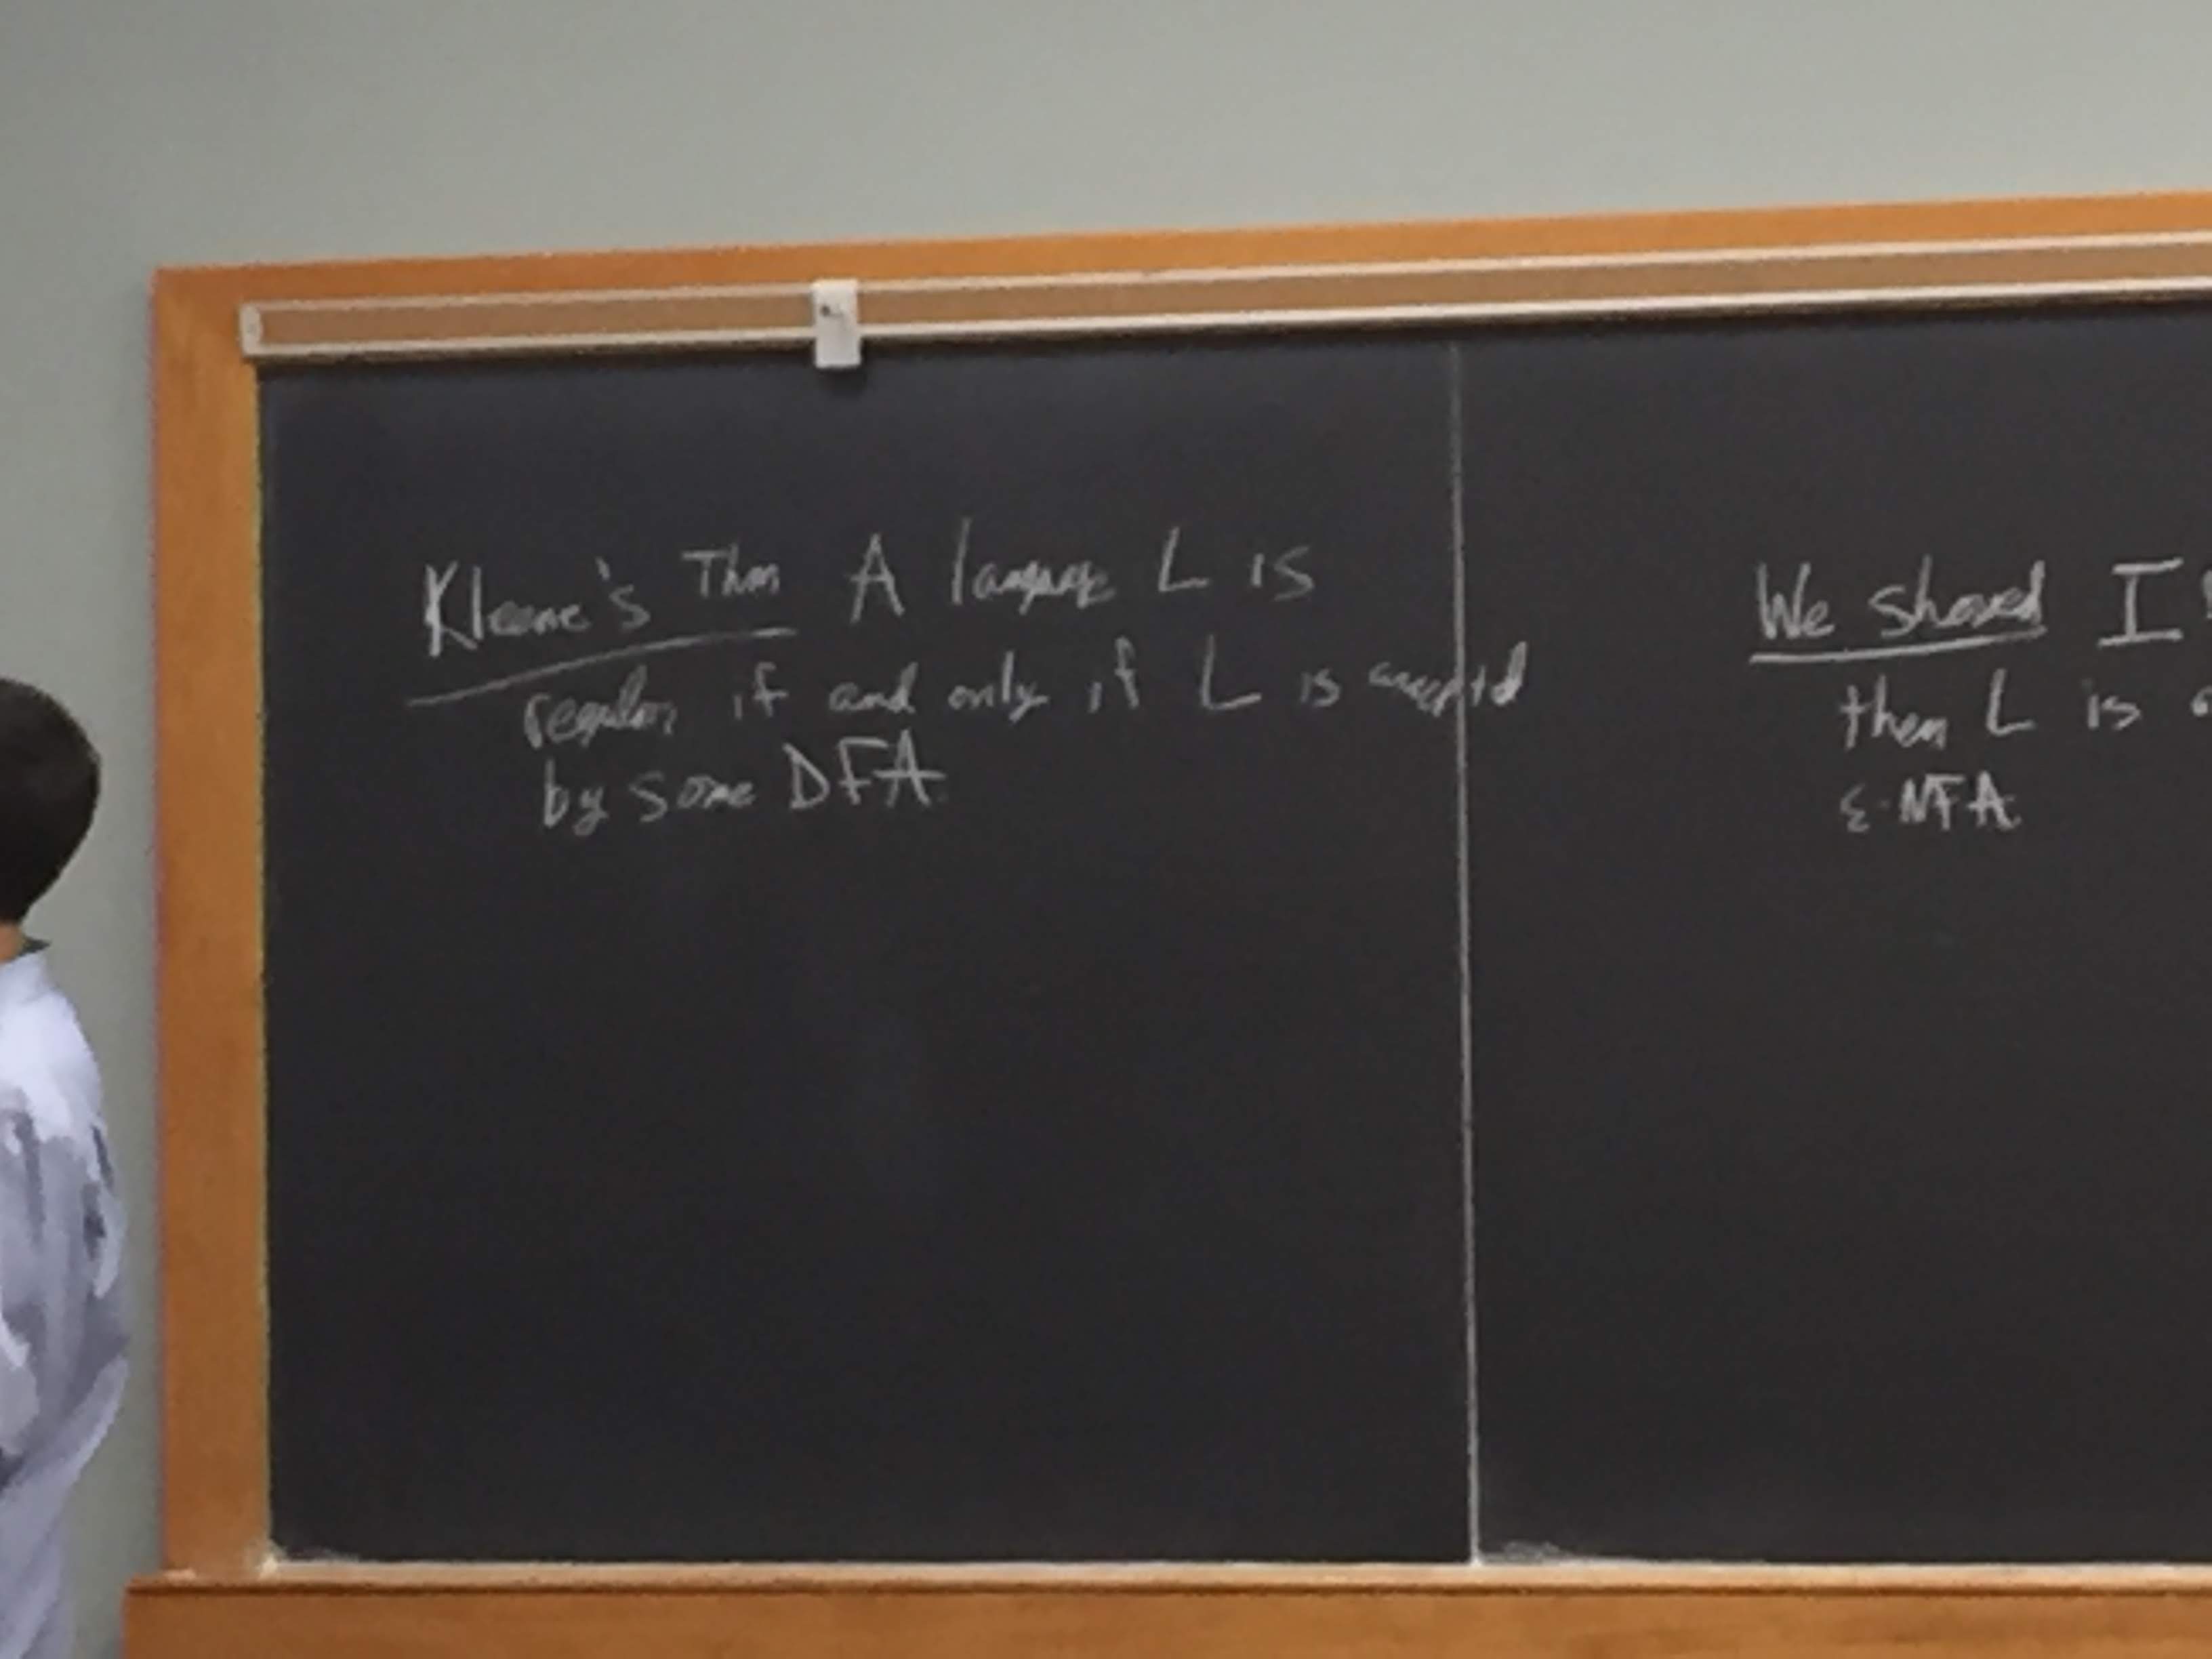 Kleene's Thm A language L is
regular if and only if L is accepted
by some DFA
We showed I
then L is
ε-NFA